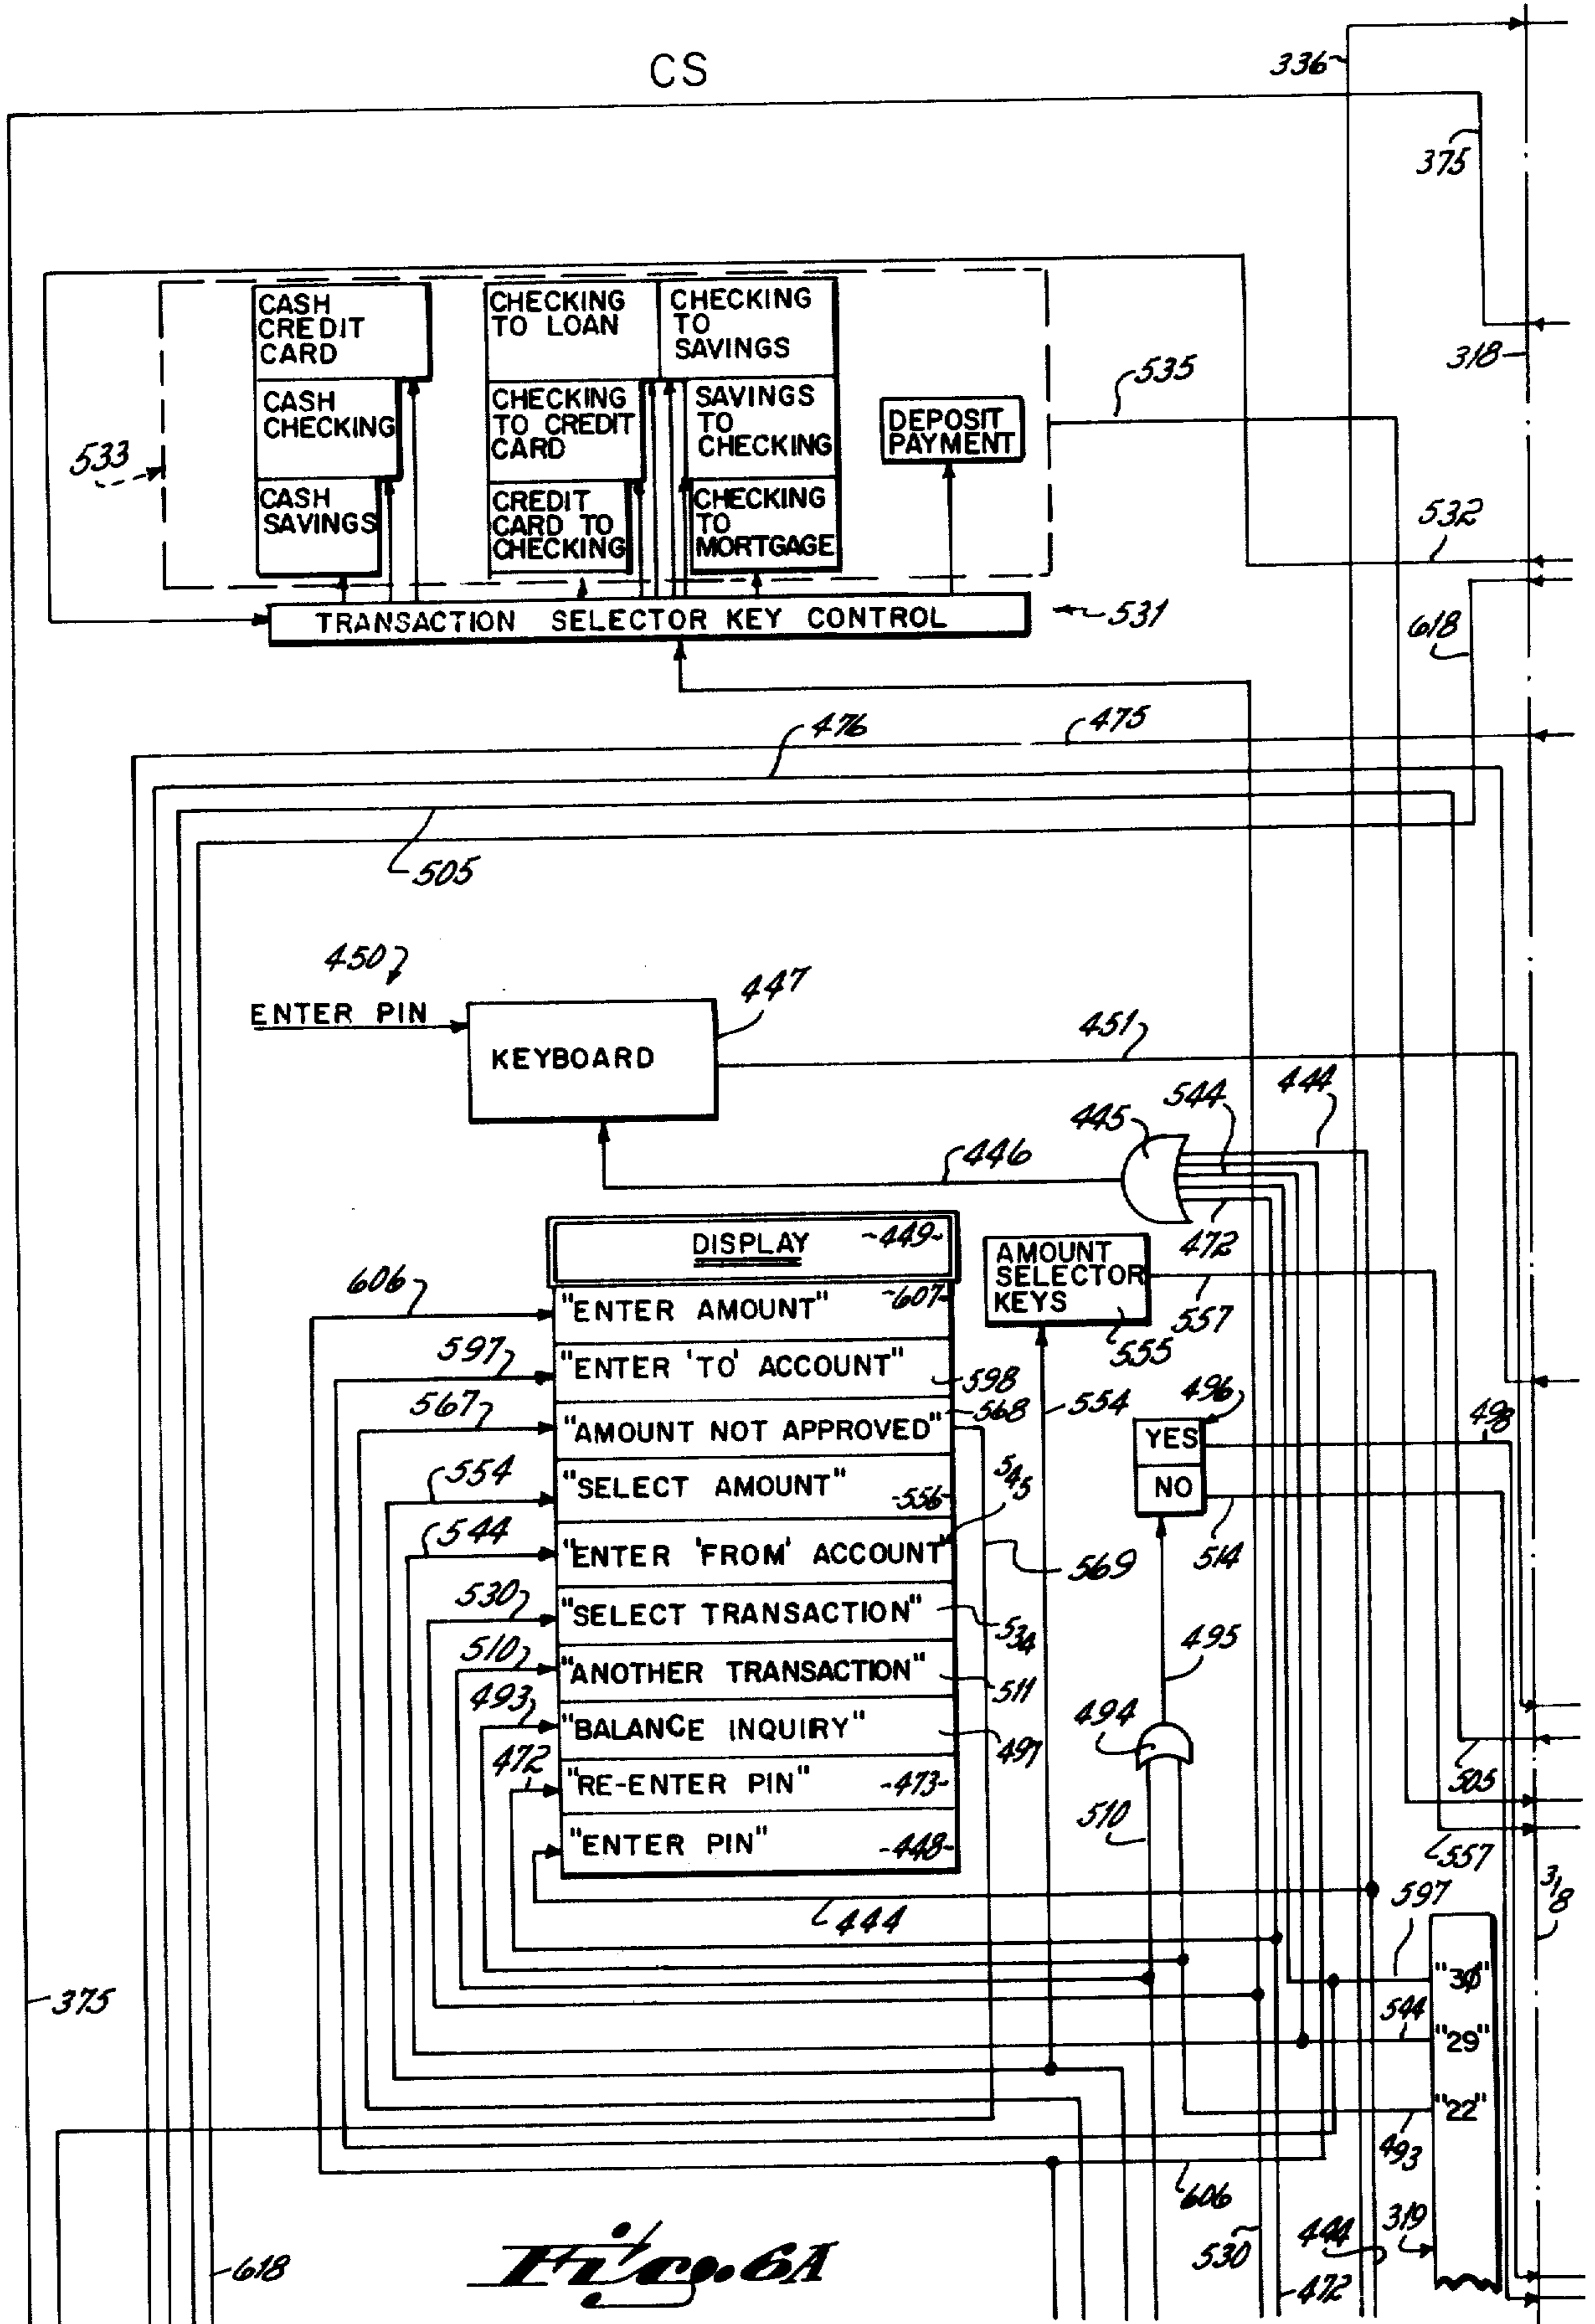 CS
336
375
318
CASH
CREDIT
CARD
CASH
CHECKING
CASH
SAVINGS
CHECKING
TO LOAN
CHECKING
TO
SAVINGS
CHECKING
TO CREDIT
CARD
SAVINGS
TO
CHECKING
CREDIT
CARD TO
CHECKING
CHECKING
TO
MORTGAGE
DEPOSIT
PAYMENT
533
535
532
TRANSACTION SELECTOR KEY CONTROL
531
618
476
475
505
450
ENTER PIN
KEYBOARD
447
451
445
544
444
446
472
DISPLAY
449
606
"ENTER AMOUNT"
607
597
"ENTER 'TO' ACCOUNT"
598
567
"AMOUNT NOT APPROVED"
568
554
"SELECT AMOUNT"
556
544
"ENTER 'FROM' ACCOUNT"
545
530
"SELECT TRANSACTION"
534
510
"ANOTHER TRANSACTION"
511
493
"BALANCE INQUIRY"
497
472
"RE-ENTER PIN"
473
"ENTER PIN"
448
444
AMOUNT
SELECTOR
KEYS
555
557
554
569
496
YES
NO
498
514
495
494
510
505
557
318
597
"30"
544
"29"
"22"
493
606
319
375
618
530
472
444
Fig. 6A